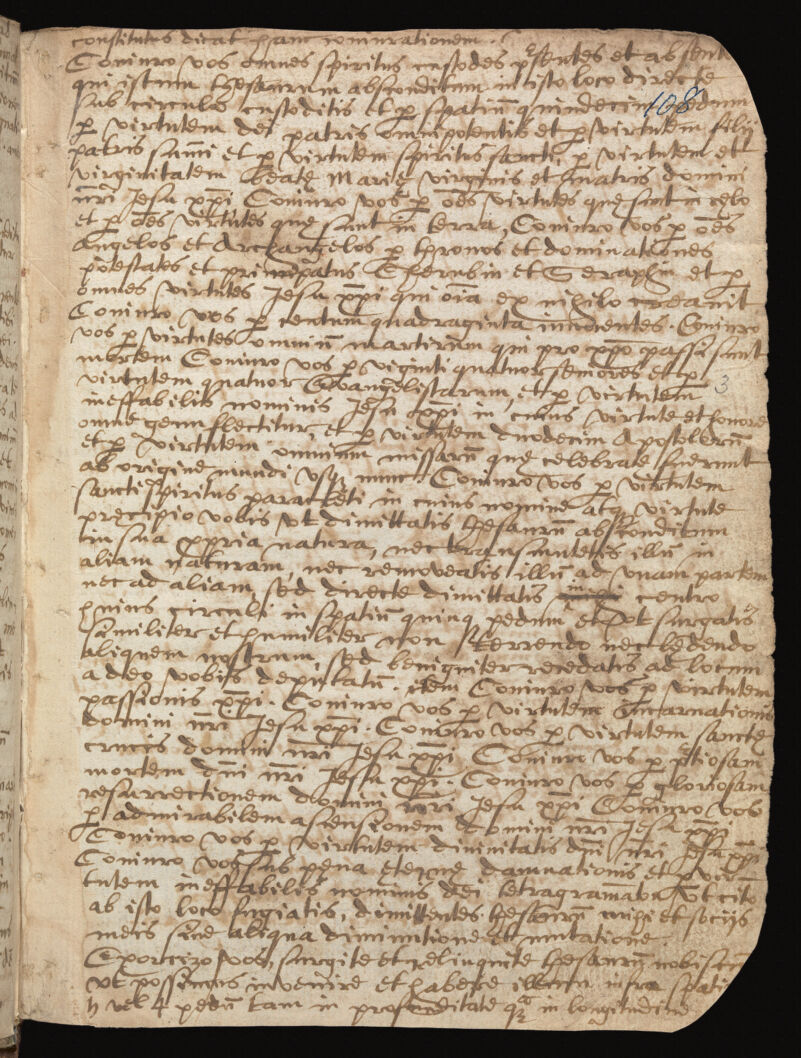 constitutus dicat hanc coniurationem.
Coniuro vos omnes spiritus custodes p̱sentes et absent
qui istum thesaurum absconditum in isto loco directe
sub circulo custoditis et ꝑ spatiũ quindecim pedum
108
ꝑ virtutem dei patris omnipotentis et ꝑ virtutem filij
patris sum̃i et ꝑ virtutem spiritus sancti, ꝑ virtutem et
virginitatem beatę Marię virginis et matris domini
nr̃i Jesu xp̃i Coniuro vos ꝑ oẽs virtutes quę sunt in cęlo
et ꝑ oẽs virtutes quę sunt in terra, Coniuro vos ꝑ oẽs
Angelos et Archangelos ꝑ thronos et dominationes
potestates et principatus Cherubin et Seraphin et ꝑ
omnes virtutes Jesu xp̃i qui oĩa ex nihilo creauit
Coniuro vos ꝑ centum quadraginta innocentes. Coniuro
vos ꝑ virtutes omniũ martirum qui pro xp̃o passi sunt
mortem Coniuro vos ꝑ viginti quatuor seniores et ꝑ
3
virtutem quatuor Euangelistarum, et ꝑ virtutem
ineffabilis nominis Jesu xp̃i in cuius virtute et honore
omne genu flectitur, et ꝑ virtutem duodecim Apostolorũ
et ꝑ virtutem omnium missarũ quę celebratę fuerunt
ab origine mundi usq; nunc. Coniuro vos ꝑ virtutem
sancti spiritus paracleti in cuius nomine atq; virtute
pręcipio vobis ut dimittatis thesaurũ absconditum
in sua ꝓpria natura, nec transmutetis illũ in
aliam naturam, nec remoueatis illũ ad unam partem
nec ad aliam, sed directe dimittatis in centro
huius circuli in spatiũ quinq; pedum et ut surgatis
similiter et humiliter non terrendo nec lędendo
aliquem nostrum, sed benigniter recedatis ad locum
a deo vobis deputatũ. item Coniuro vos ꝑ virtutem
passionis xp̃i. Coniuro vos ꝑ virtutem Incarnationis
domini nr̃i Jesu xp̃i. Coniuro vos ꝑ virtutem sanctę
crucis domini nr̃i Jesu xp̃i Coniuro vos ꝑ p̃tiosam
mortem dñi nr̃i Jesu xp̃i. Coniuro vos ꝑ gloriosam
resurrectionem domini nr̃i Jesu xp̃i Coniuro vos
ꝑ admirabilem ascensionem domini nr̃i Jesu xp̃i
Coniuro vos ꝑ virtutem diuinitatis dñi nr̃i Jesu xp̃i
Coniuro vos sub pęna ęternę damnationis et ꝑ virtu
tutem ineffabilis nominis dei tetragram̃aton ut cito
ab isto loco fugiatis, dimittentes thesaurũ mihi et sociis
meis sine aliqua diminutione et mutatione.
Exorcizo vos, surgite et relinquite thesaurũ nobiscum
ut possimus inuenire et habere illum infra spati
vel 4 pedũ tam in profunditate quam in longitudine